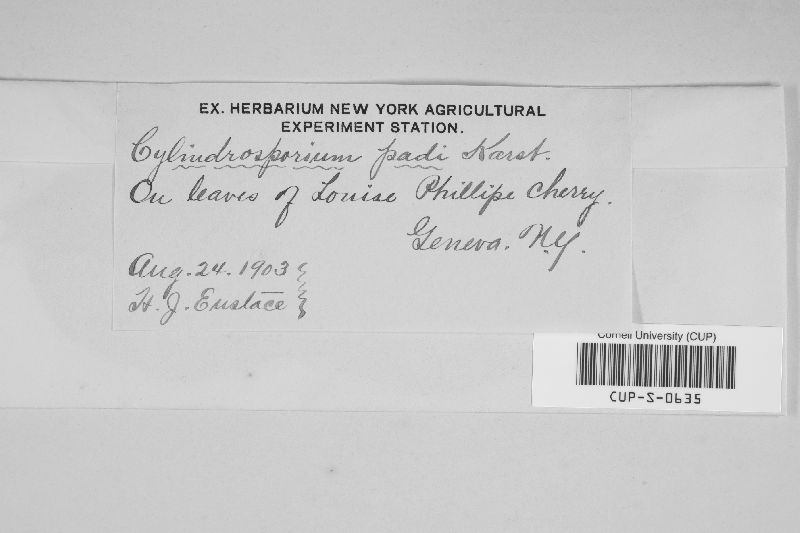 EX. HERBARIUM NEW YORK AGRICULTURAL
EXPERIMENT STATION.
Cylindrosporium padi Karst.
On leaves of Louise Phillipe Cherry.
Geneva. N.Y.
Aug. 24. 1903
H. J. Eustace
Cornell University (CUP)
CUP-S-0635